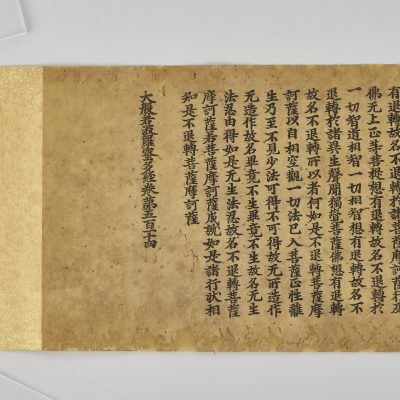 有退轉故名不退轉於諸菩薩摩訶薩行及
佛无上正等菩提想有退轉故名不退轉於
一切智道相智一切相智想有退轉故名不
退轉於諸異生聲聞獨覺菩薩佛想有退轉
故名不退轉所以者何如是不退轉菩薩摩
訶薩以自相空觀一切法已入菩薩正性離
生乃至不見少法可得不可得故无所造作
无造作故畢竟不生畢竟不生故名无生
法忍由得如是无生法忍故名不退轉菩薩
摩訶薩若菩薩摩訶薩成就如是諸行狀相
知是不退轉菩薩摩訶薩
大般若波羅蜜多經卷第五百一十四